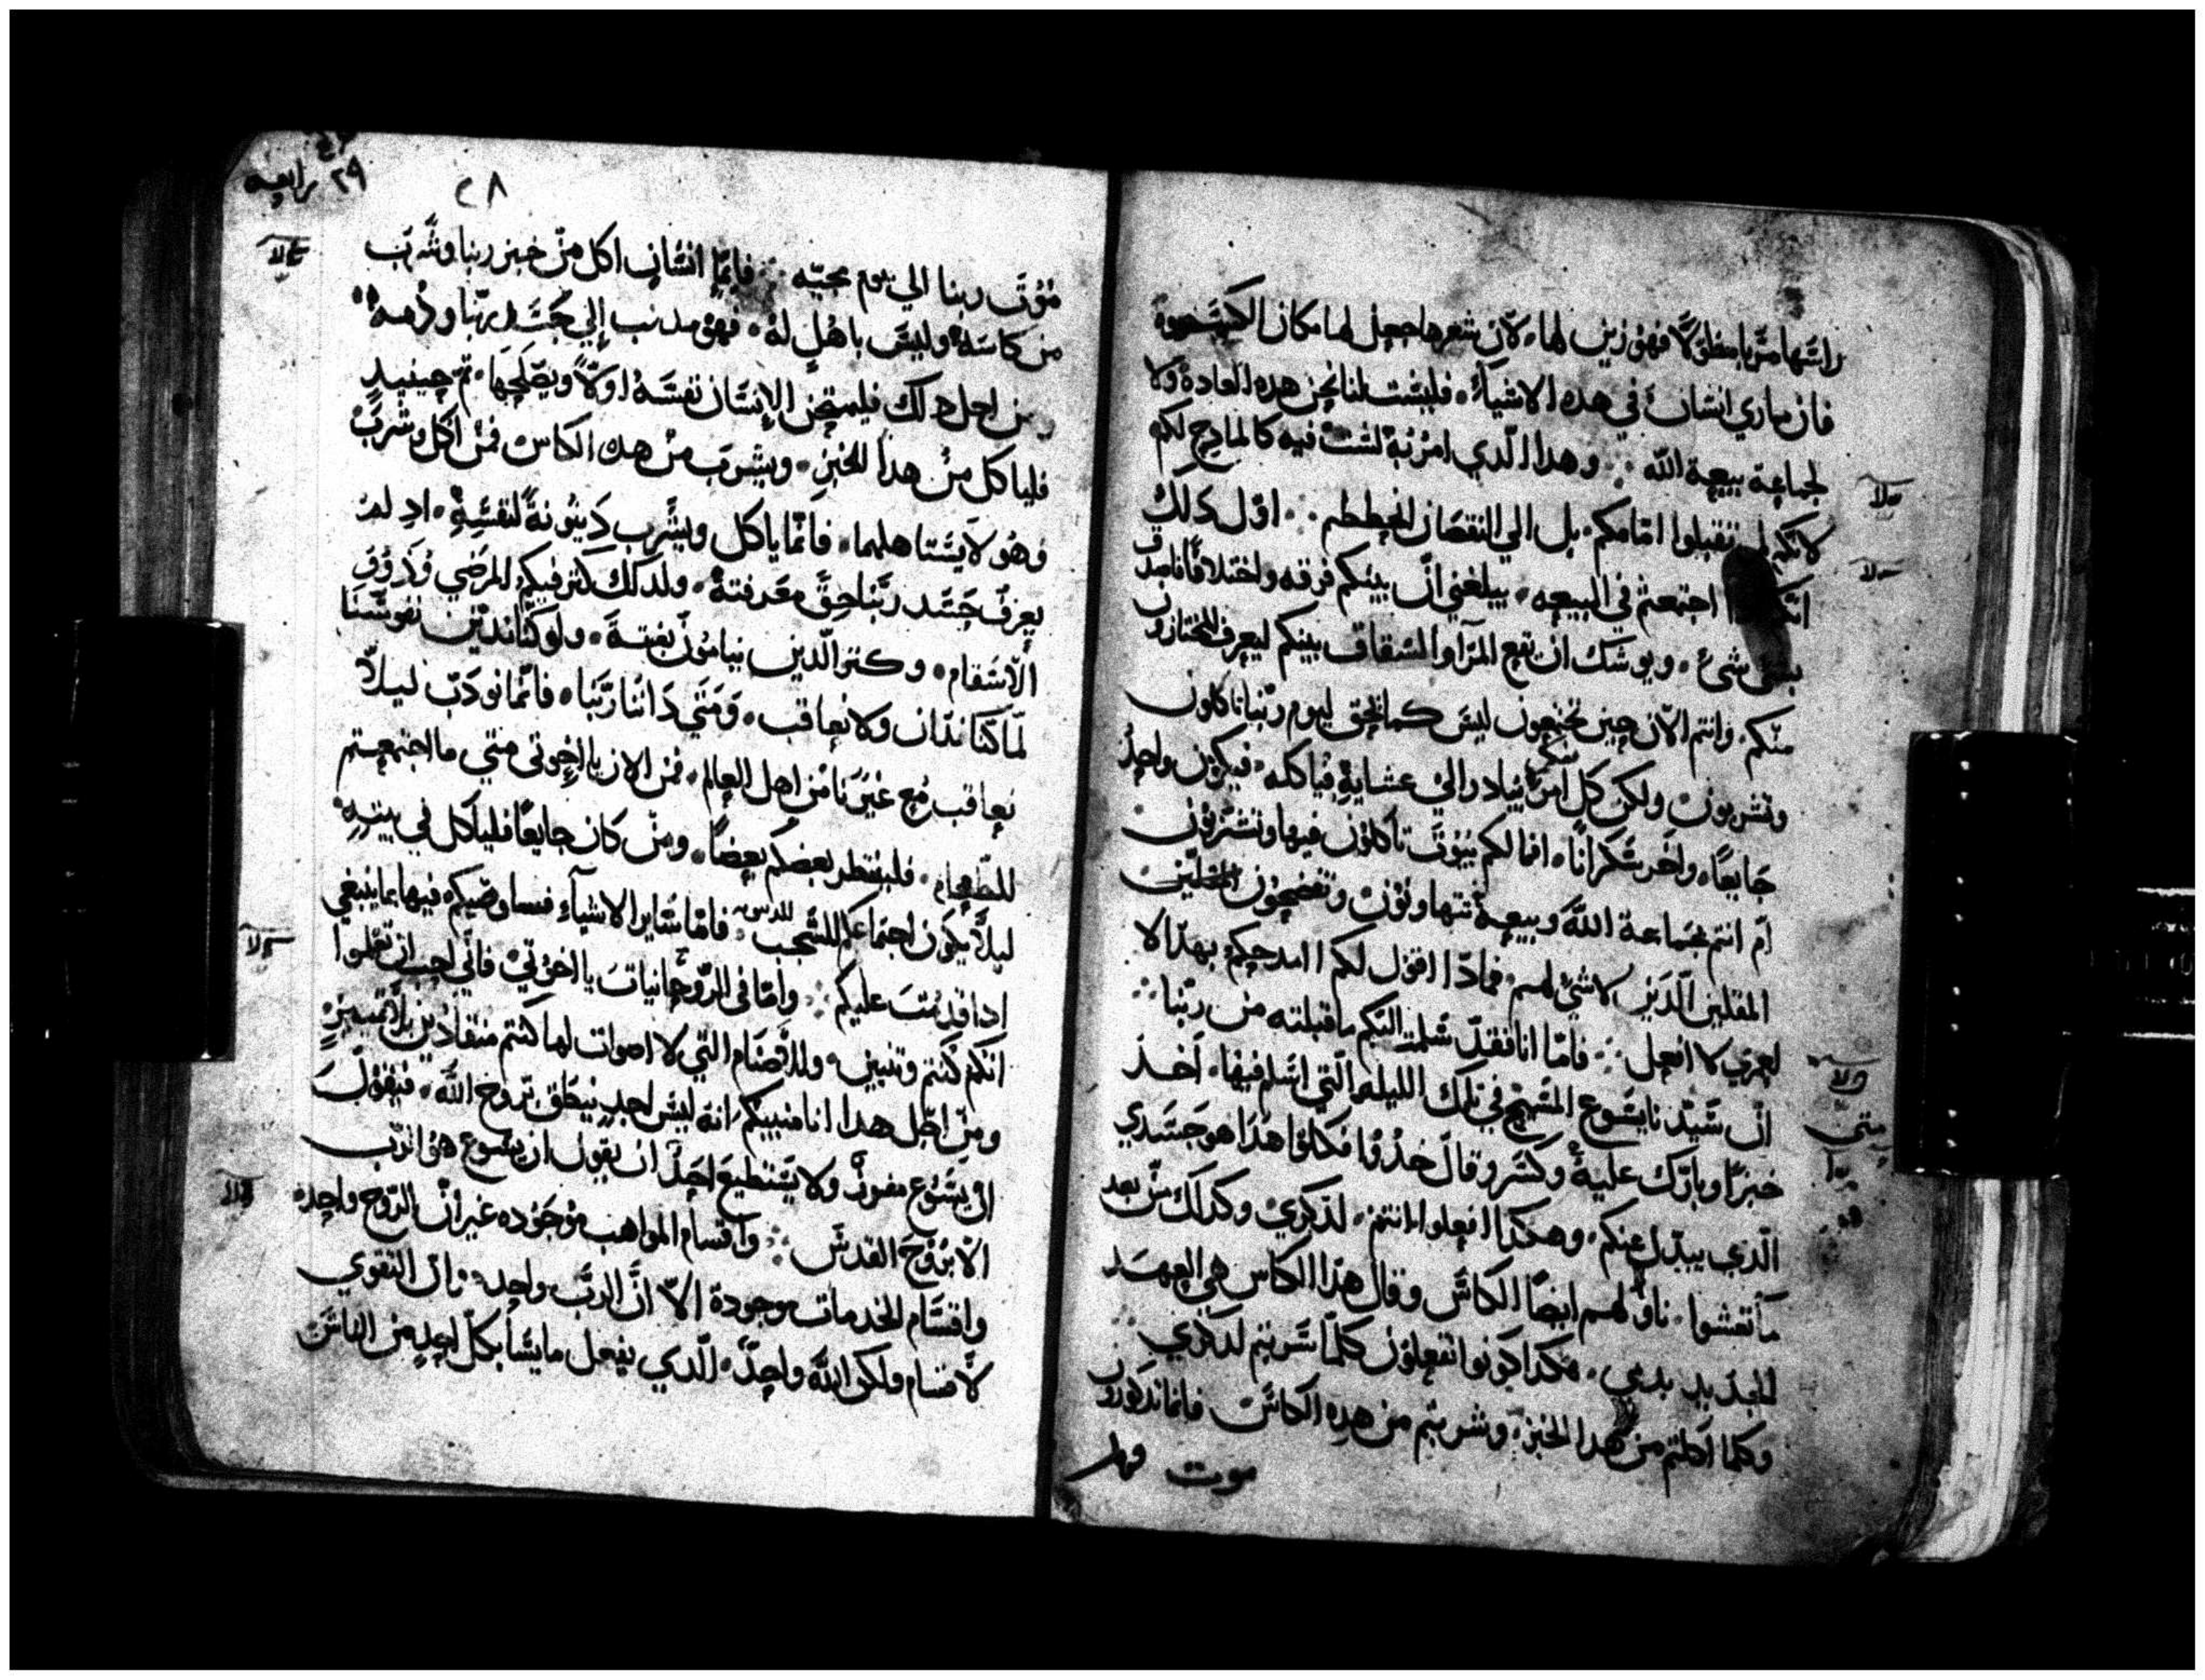 راسها مربا مطولا فهو زين لها، لان شعرها جعل لها مكان الكسوة
فان ماري انسان في هده الاشيآء، فليست لنا نحن هده العادة ولا
لجماعة بيعة الله ∴ وهدا الدي امر به لست فيه كالمادح لكم
لانكم لم تقبلوا امامكم، بل الي النقصان انحططتم ∴ اول دلك
اجتمعتم في البيعه، يبلغني ان بينكم فرقه واختلافا فاصدق
شئ، ويوشك ان تقع المرآ والشقاق بينكم ليعرف المختارون
منكم، وانتم الان حين تجتمعون ليس كما يحق ليوم ربنا تاكلون
وتشربون ولكن كل امرئ منكم يبادر الي عشايه فياكله، فيكون واحد
جايعًا، واخر سكرانًا، افما لكم بيوت تاكلون فيها وتشربون
ام انتم بجماعة الله وبيعة تتهاونون وتفضحون
المقلين الدين لا شئ لهم، فمادا اقول لكم اامدحكم بهدا لا
لعمري لا افعل ∴ فاما انا فقد سلمت اليكم ما قبلته من ربنا ∴
ان سيدنا يسوع المسيح في تلك الليله التي اسلم فيها، اخد
خبزًا وبارك عليه وكسر وقال خدوا فكلوا هدا هو جسدي
الدي يبدل عنكم، وهكدا افعلوا انتم، لدكري وكدلك من بعد
ما تعشوا، ناولهم ايضًا الكاس وقال هدا الكاس هي العهد
الجديد بدمي، هكدا كونوا تفعلون كلما شربتم لدكري ∴
وكلما اكلتم من هدا الخبز، وشربتم من هده الكاس فانما تدكرون
موت
٢٩ رابعه
٢٨
موت ربنا الي يوم مجيه ∴ فايما انسان اكل من خبز ربنا وشرب
من كاسه وليس باهل له، فهو مدنب الي جسد ربنا ودمه
من اجل دلك فليمتحن الانسان نفسه اولًا ويصلحها، ثم حينيد
فلياكل من هدا الخبز، ويشرب من هده الكاس فمن اكل وشرب
وهو لا يستاهلهما، فانما ياكل ويشرب دينونة لنفسه، اد لم
يعرف جسد ربنا حق معرفته، ولدلك كثر فيكم المرضي ودوو
الاسقام، وكثر الدين ينامون بغتة، ولو كنا ندين نفوسنا
لما كنا ندان ولا نعاقب، ومتي داننا ربنا، فانما نودب ليلا
نعاقب مع غيرنا من اهل العالم، فمن الان يا اخوتي متي ما اجتمعتم
للطعام، فلينتظر بعضكم بعضا، ومن كان جايعًا فلياكل في بيته
ليلا يكون اجتماعكم للشجب للدينونه، فاما ساير الاشيآء فساوصيكم فيها بما ينبغي
ادا قدمت عليكم ∴ واما في الروحانيات يا اخوتي فاني احب ان تعلموا
انكم كنتم وثنيين، وللاصنام التي لا اصوات لها كنتم منقادين بلا تمييز
ومن اجل هدا انا منبيكم انه ليس احد ينطق بروح الله، فيقول
ان يسوع مفروز ولا يستطيع احد ان يقول ان يسوع هو الرب
الا بروح القدس ∴ واقسام المواهب موجوده غير ان الروح واحده
واقسام الخدمات موجودة الا ان الرب واحد، وان القوي
لاقسام ولكن الله واحد، الدي يفعل ما يشا بكل احد من الناس